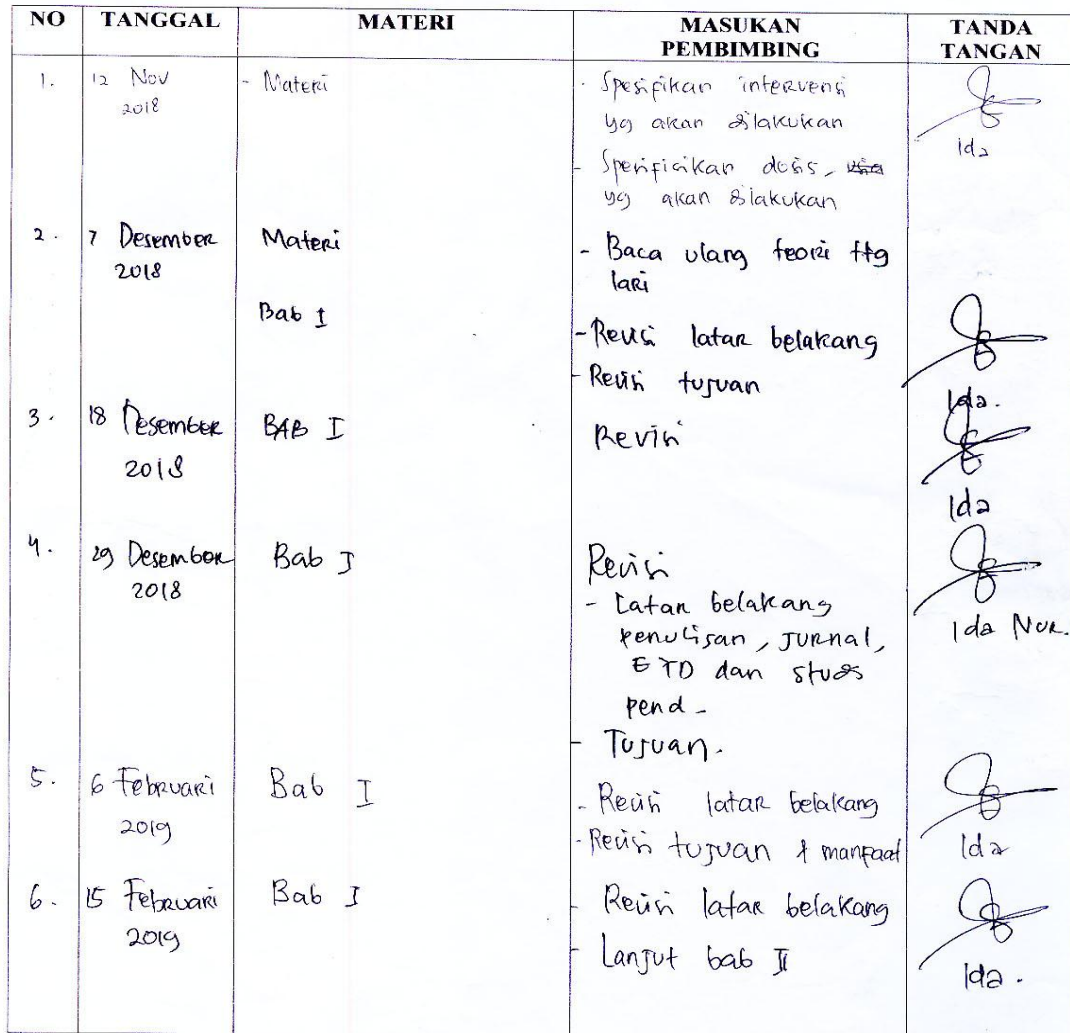 NO TANGGAL MATERI MASUKAN PEMBIMBING TANDA TANGAN
1. 12 Nov 2018 - Materi - Spesifikan intervensi
yg akan dilakukan
Ida
- Spesificikan dosis,
yg akan dilakukan
2. 7 Desember 2018 Materi - Baca ulang teori ttg
lari
Bab I - Revisi latar belakang
- Revisi tujuan
Ida.
3. 18 Desember 2018 BAB I Revisi
Ida
4. 29 Desember 2018 Bab I Revisi
- Latar belakang
penulisan, jurnal,
ETD dan studi
pend -
Ida Nur.
- Tujuan.
5. 6 Februari 2019 Bab I - Revisi latar belakang
- Revisi tujuan & manfaat
Ida
6. 15 Februari 2019 Bab I - Revisi latar belakang
- Lanjut bab II
Ida.